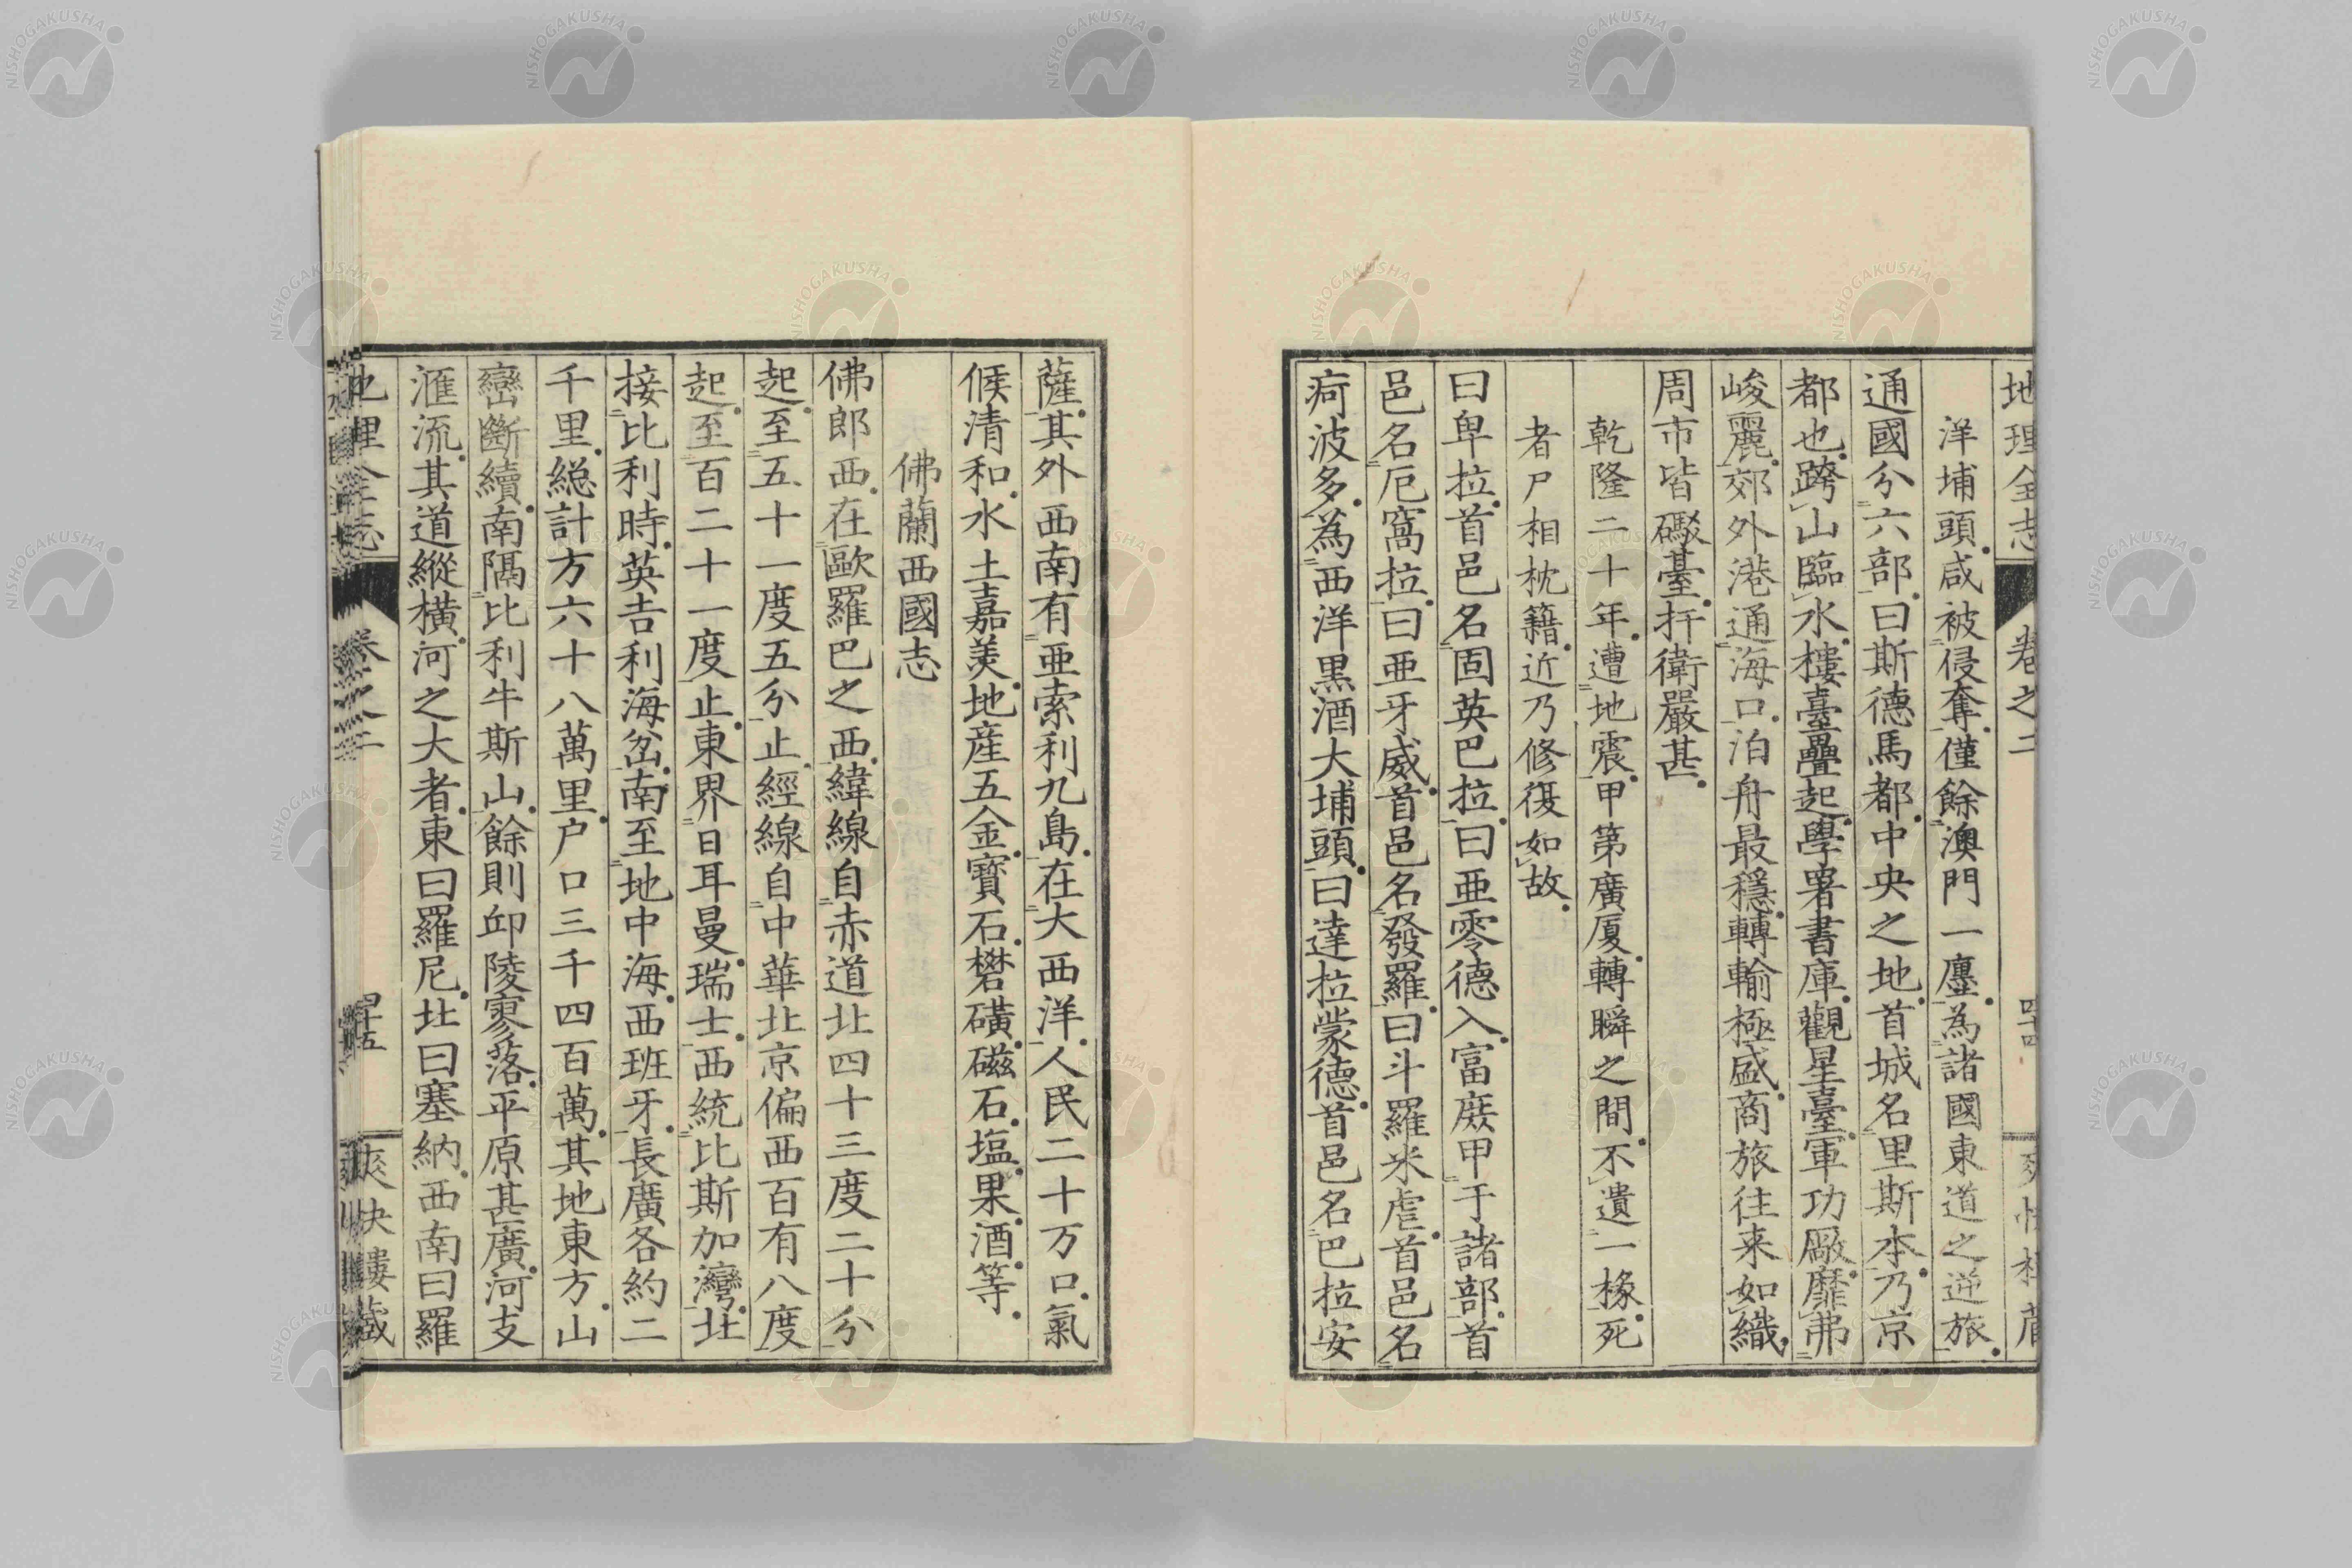 地理全志 卷之二 四十四
洋埔頭咸被侵奪僅餘澳門一廛為諸國東道之逆旅
通國分六部曰斯德馬都中央之地首城名里斯本乃京
都也跨山臨水樓臺疊起學署書庫觀星臺軍功廠靡弗
峻麗郊外港通海口泊舟最穩轉輸極盛商旅往来如織
周市皆礟臺扞衛嚴甚
乾隆二十年遭地震甲第廣厦轉瞬之間不遺一椽死
者尸相枕籍近乃修復如故
曰卑拉首邑名固英巴拉曰亜零德入富庶甲于諸部首
邑名厄窩拉曰亜牙威首邑名發羅曰斗羅米虐首邑名
疴波多為西洋黒酒大埔頭曰達拉蒙德首邑名巴拉安
薩其外西南有亜索利九島在大西洋人民二十万口氣
候清和水土嘉美地産五金寶石礬磺磁石塩果酒等
佛蘭西國志
佛郎西在歐羅巴之西緯線自赤道北四十三度二十分
起至五十一度五分止經線自中華北京偏西百有八度
起至百二十一度止東界日耳曼瑞士西統比斯加灣北
接比利時英吉利海岔南至地中海西班牙長廣各約二
千里縂計方六十八萬里户口三千四百萬其地東方山
巒斷續南隅比利牛斯山餘則邱陵寥落平原甚廣河支
滙流其道縱橫河之大者東曰羅尼北曰塞納西南曰羅
地理全志 卷之二 四十五 爽快樓藏
NISHOGAKUSHA